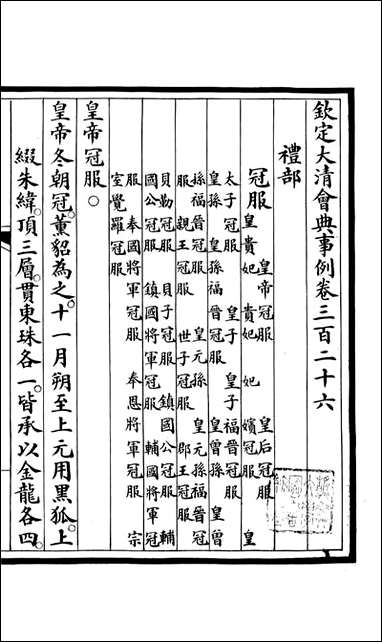 欽定大清會典事例卷三百二十六
禮部
冠服 皇帝冠服 皇后冠服
皇貴妃 貴妃 妃 嬪冠服 皇
太子冠服 皇子冠服 皇子福晉冠服
皇孫 皇孫福晉冠服 皇曾孫 皇曾
孫福晉冠服 皇元孫 皇元孫福晉冠
服 親王冠服 世子冠服 郡王冠服
貝勒冠服 貝子冠服 鎮國公冠服 輔
國公冠服 鎮國將軍冠服 輔國將軍冠
服 奉國將軍冠服 奉恩將軍冠服 宗
室覺羅冠服
皇帝冠服○
皇帝冬朝冠。薰貂為之。十一月朔至上元用黑狐。上
綴朱緯。頂三層。貫東珠各一。皆承以金龍各四。